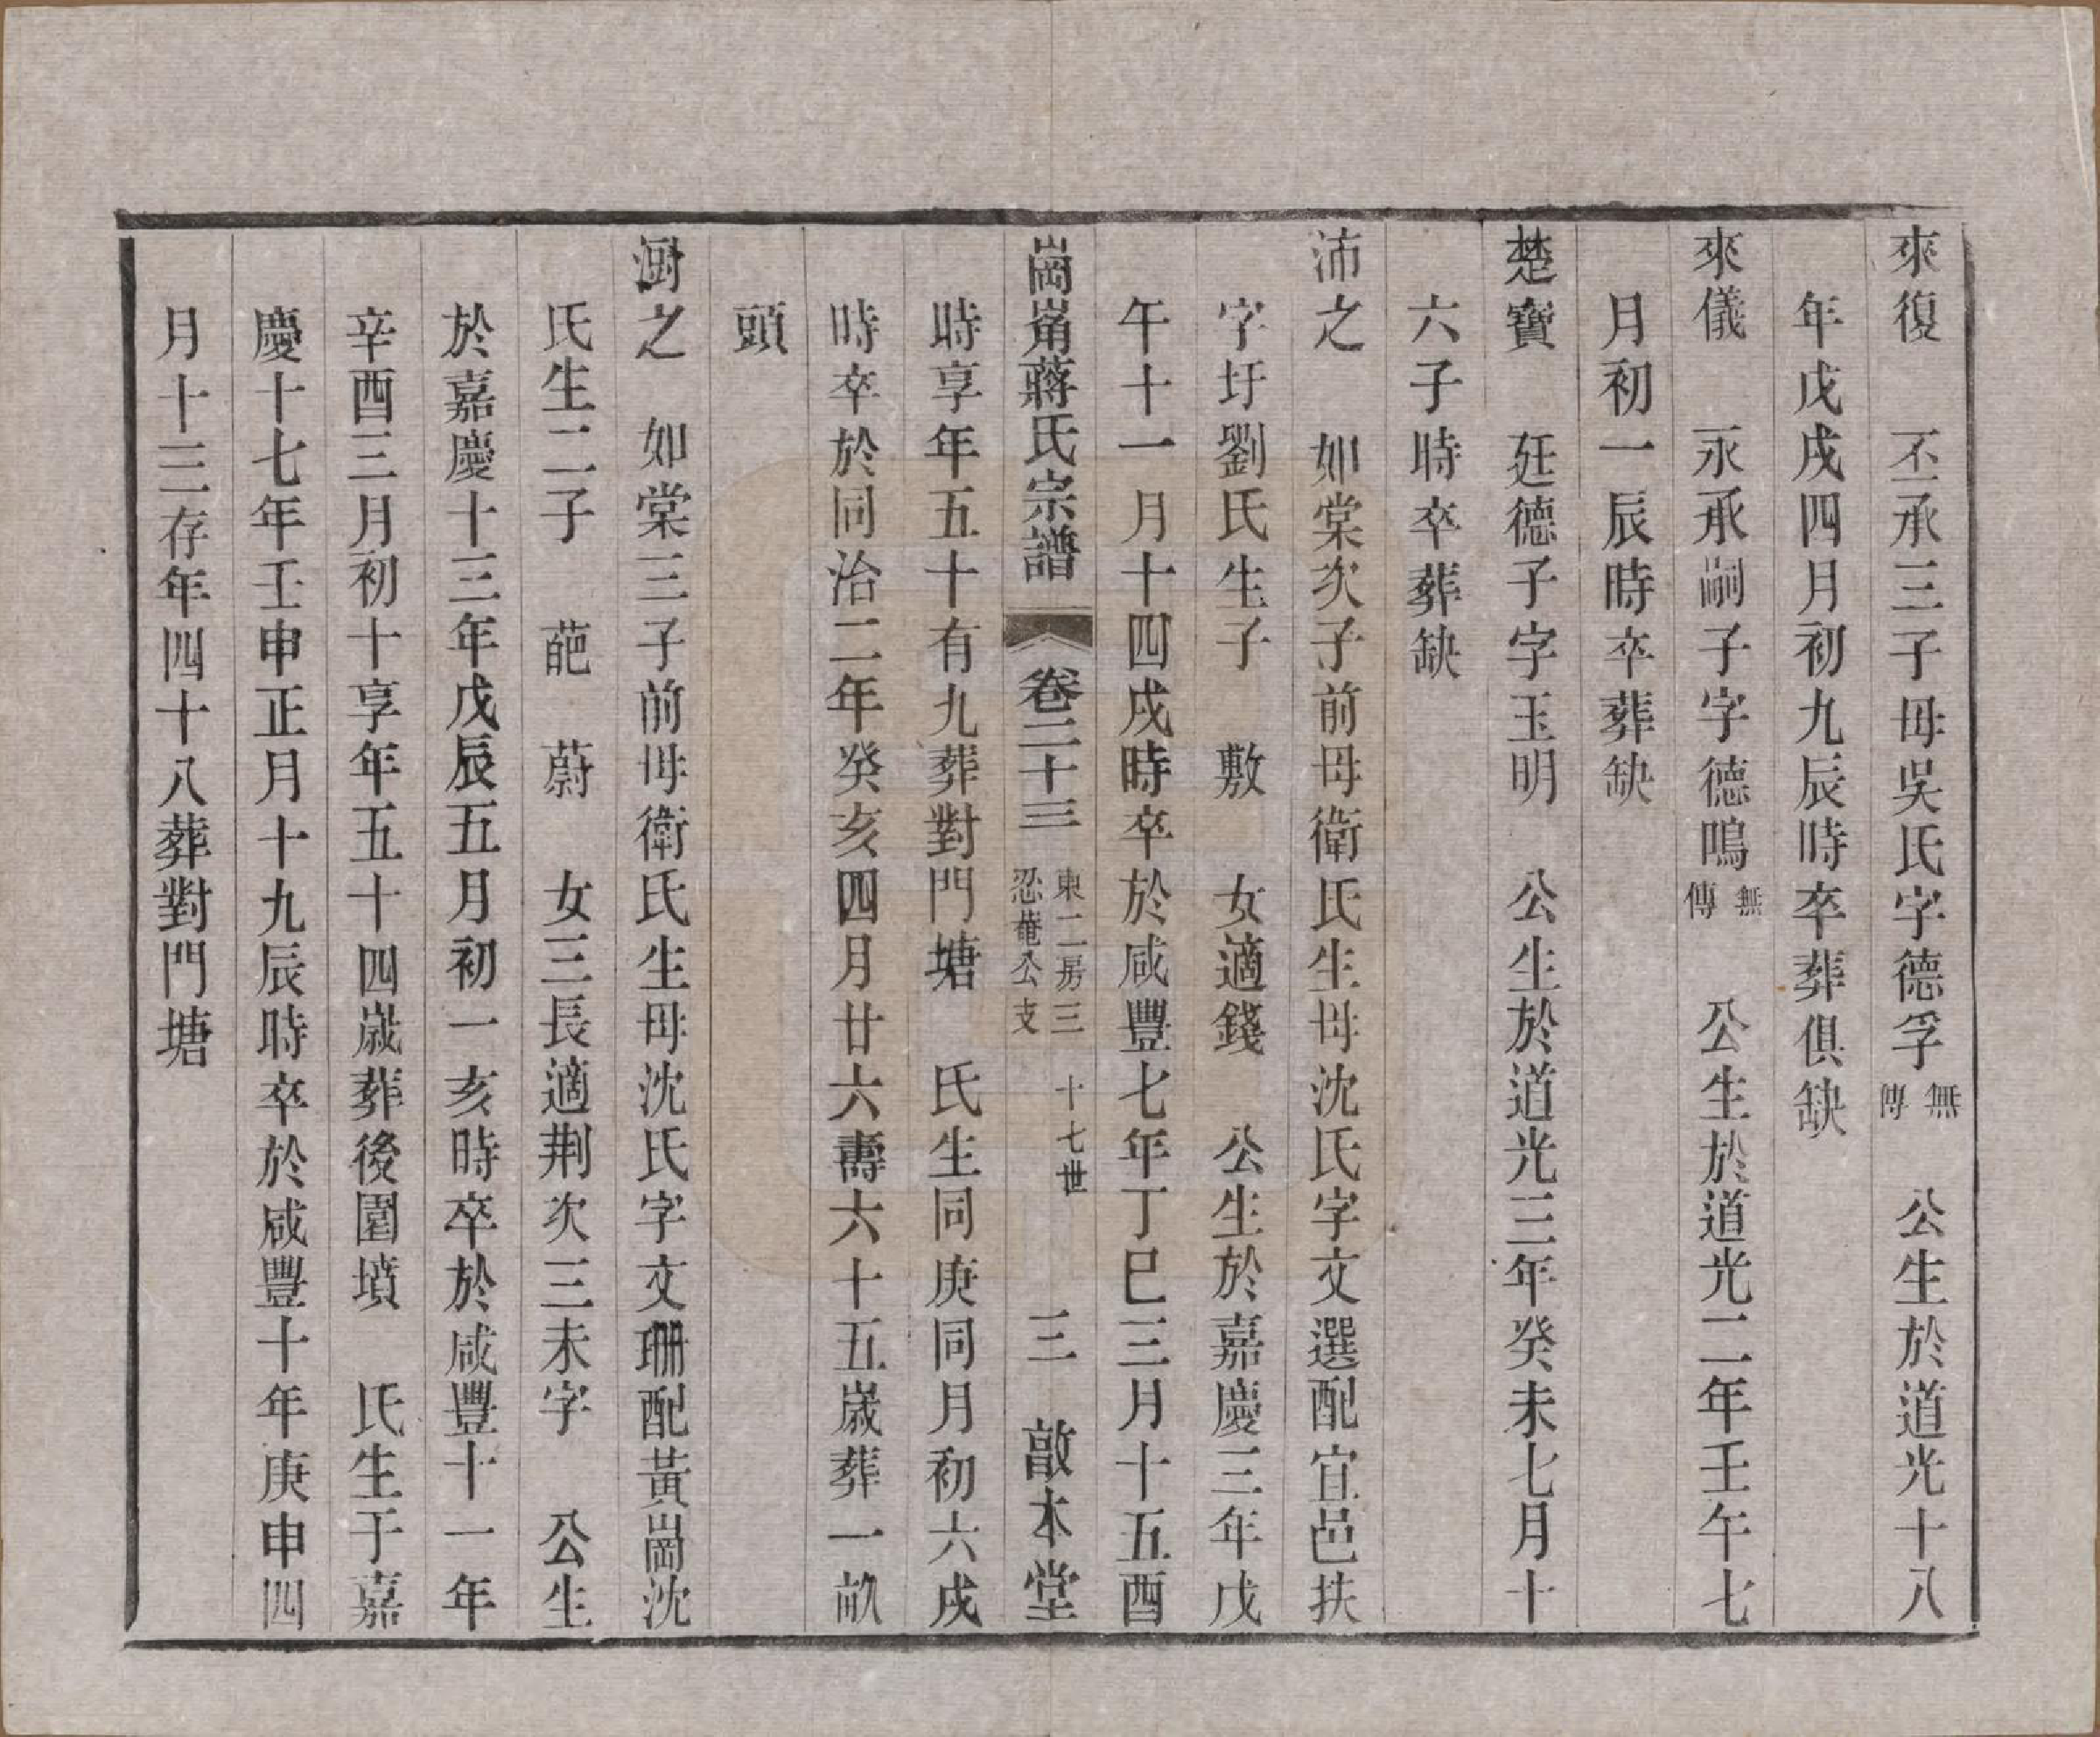 來復　丕承三子母吳氏字德孚無傳　公生於道光十八
年戊戌四月初九辰時卒葬俱缺
來儀　永承嗣子字德鳴無傳　公生於道光二年壬午七
月初一辰時卒葬缺
楚寶　廷德子字玉明　公生於道光三年癸未七月十
六子時卒葬缺
沛之　如棠次子前母衛氏生母沈氏字文選配宜邑扶
字圩劉氏生子　敷　女適錢　公生於嘉慶三年戊
午十一月十四戌時卒於咸豐七年丁巳三月十五酉
崗峟蔣氏宗譜　卷二十三　東二房三忍菴公支　十七世　三　敨本堂
時享年五十有九葬對門塘　氏生同庚同月初六戌
時卒於同治二年癸亥四月廿六壽六十五歲葬一畝
頭
澍之　如棠三子前母衛氏生母沈氏字文珊配黃崗沈
氏生二子　葩　蔚　女三長適荆次三未字　公生
於嘉慶十三年戊辰五月初一亥時卒於咸豐十一年
辛酉三月初十享年五十四歲葬後園墳　氏生于嘉
慶十七年壬申正月十九辰時卒於咸豐十年庚申四
月十三存年四十八葬對門塘